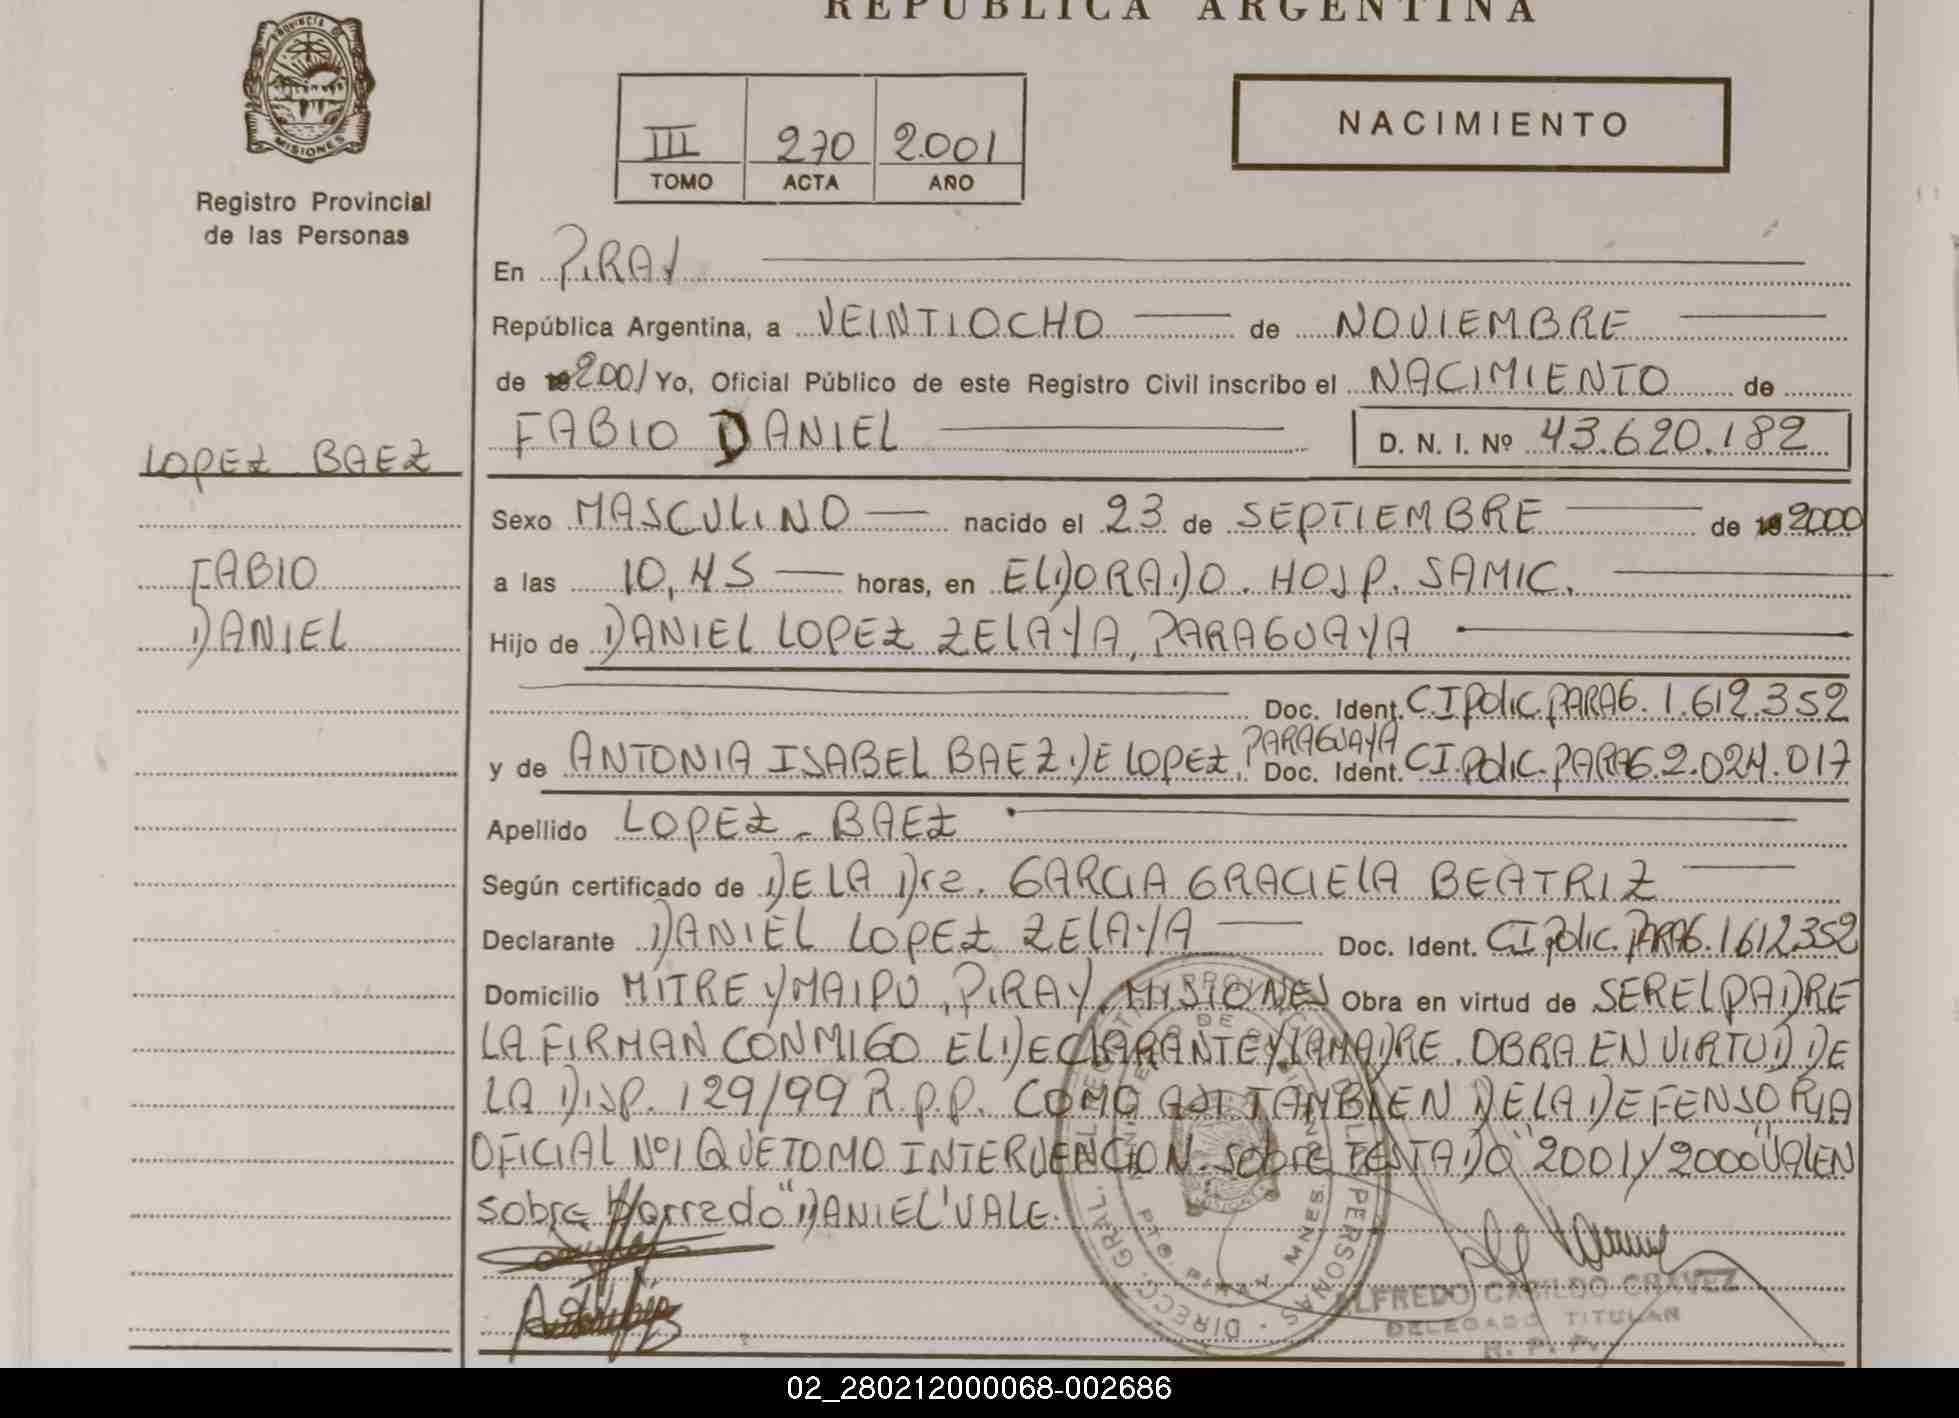 REPUBLICA ARGENTINA
PROVINCIA DE
MISIONES
Registro Provincial
de las Personas
III 270 2.001
TOMO ACTA AÑO
NACIMIENTO
En PIRAY
República Argentina, a VEINTIOCHO de NOVIEMBRE
de 19 2001 Yo, Oficial Público de este Registro Civil inscribo el NACIMIENTO de
FABIO DANIEL D. N. I. Nº 43.620.182
LOPEZ BAEZ
FABIO
DANIEL
Sexo MASCULINO nacido el 23 de SEPTIEMBRE de 19 2000
a las 10,45 horas, en ELDORADO. HOSP. SAMIC.
Hijo de DANIEL LOPEZ ZELAYA, PARAGUAYA
Doc. Ident. C I Polic. PARAG. 1.612.352
y de ANTONIA ISABEL BAEZ DE LOPEZ, PARAGUAYA Doc. Ident. C I. Polic. PARAG. 2.024.017
Apellido LOPEZ - BAEZ
Según certificado de DE LA Dra. GARCIA GRACIELA BEATRIZ
Declarante DANIEL LOPEZ ZELAYA Doc. Ident. C I Polic. PARAG. 1612352
Domicilio MITRE Y MAIPU, PIRAY, MISIONES Obra en virtud de SER EL PADRE
LA FIRMAN CONMIGO EL DECLARANTE Y LA MADRE. OBRA EN VIRTUD DE
LA DISP. 129/99 R.P.P. COMO ASI TAMBIEN DE LA DEFENSORIA
OFICIAL Nº1 QUE TOMO INTERVENCION. Sobre TESTADO "2001 Y 2000" VALEN
sobre borrado "DANIEL" VALE.
ALFREDO CASILDO CHAVEZ
DELEGADO TITULAR
R. P. P.
02_280212000068-002686